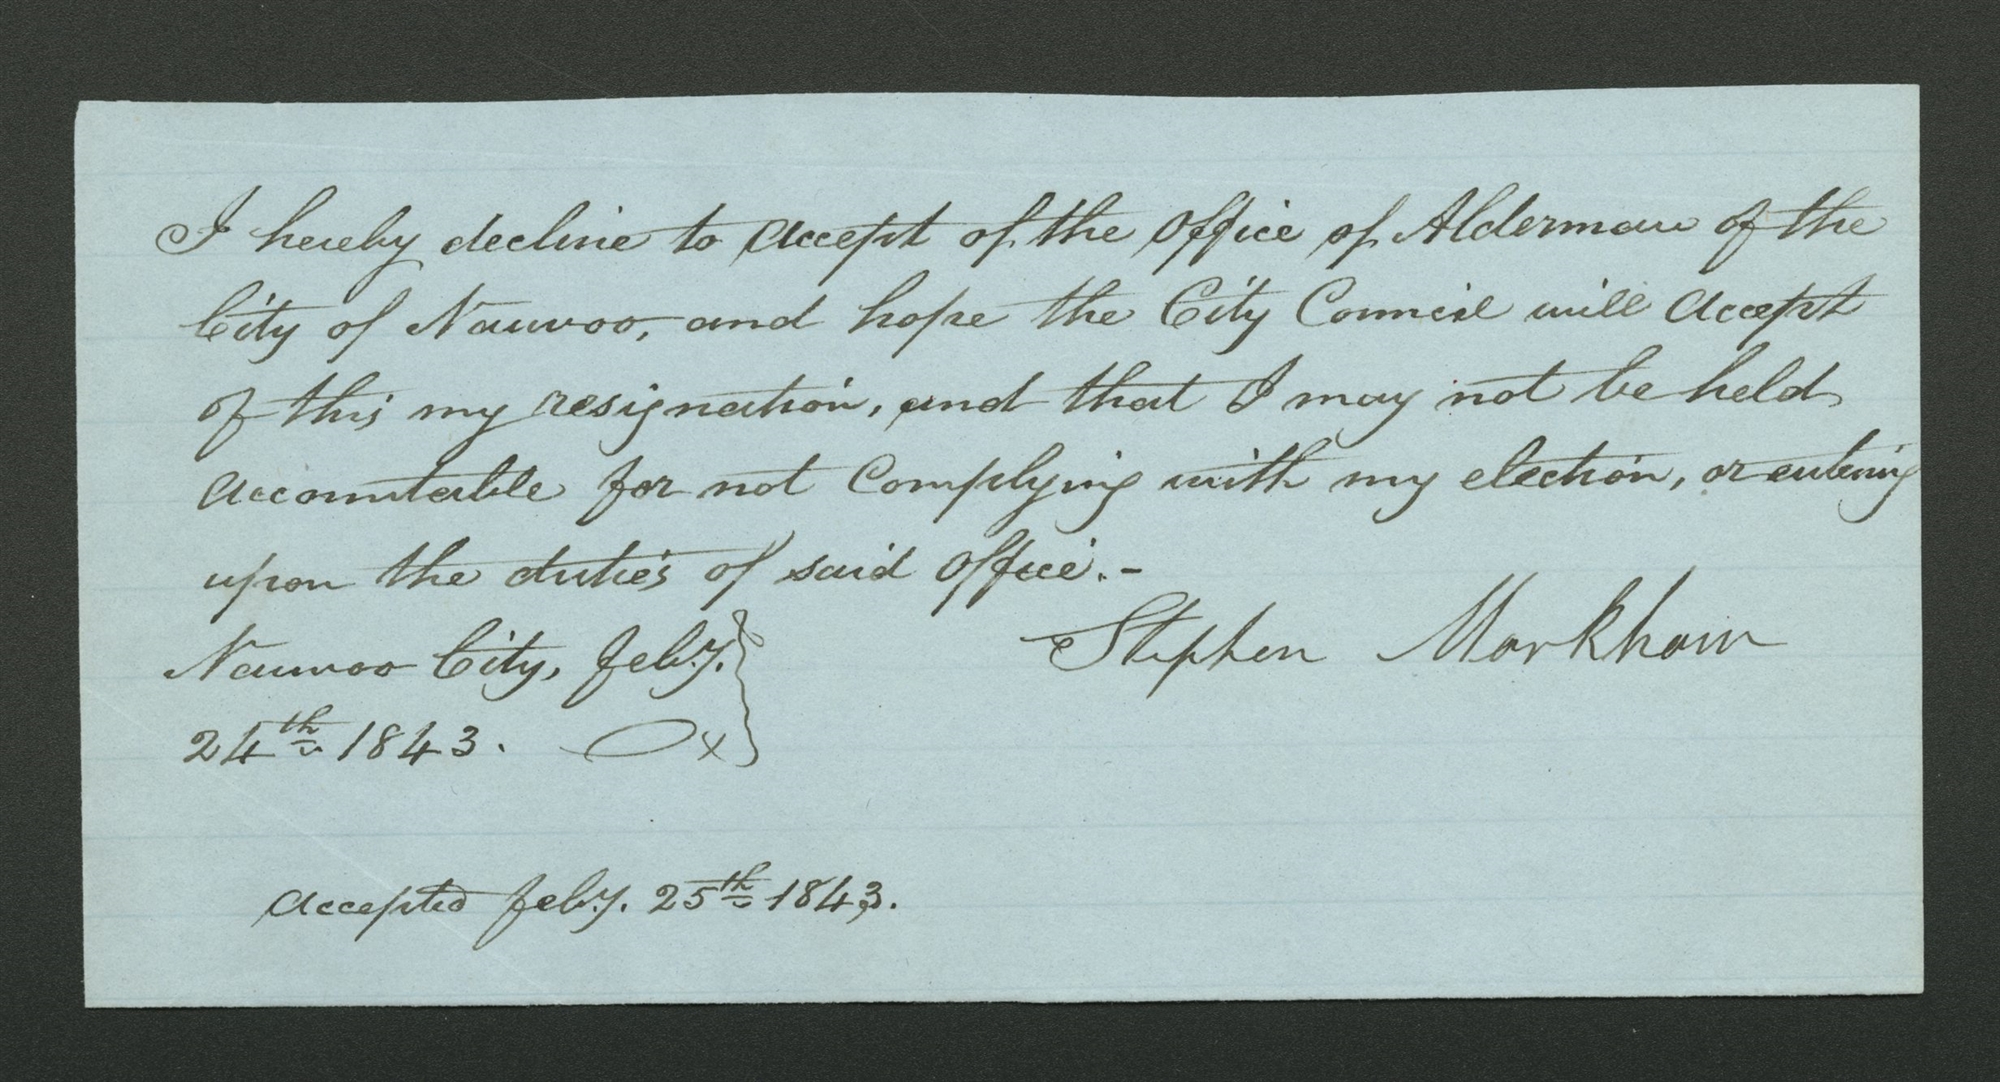 I hereby decline to accept of the Office of Alderman of the
City of Nauvoo, and hope the City Council will accept
of this my resignation, and that I may not be held
accountable for not complying with my election, or entering
upon the duties of said Office.-
Nauvoo City, Feby. Stephen Markham
24th 1843.
Accepted Feby. 25th 1843.